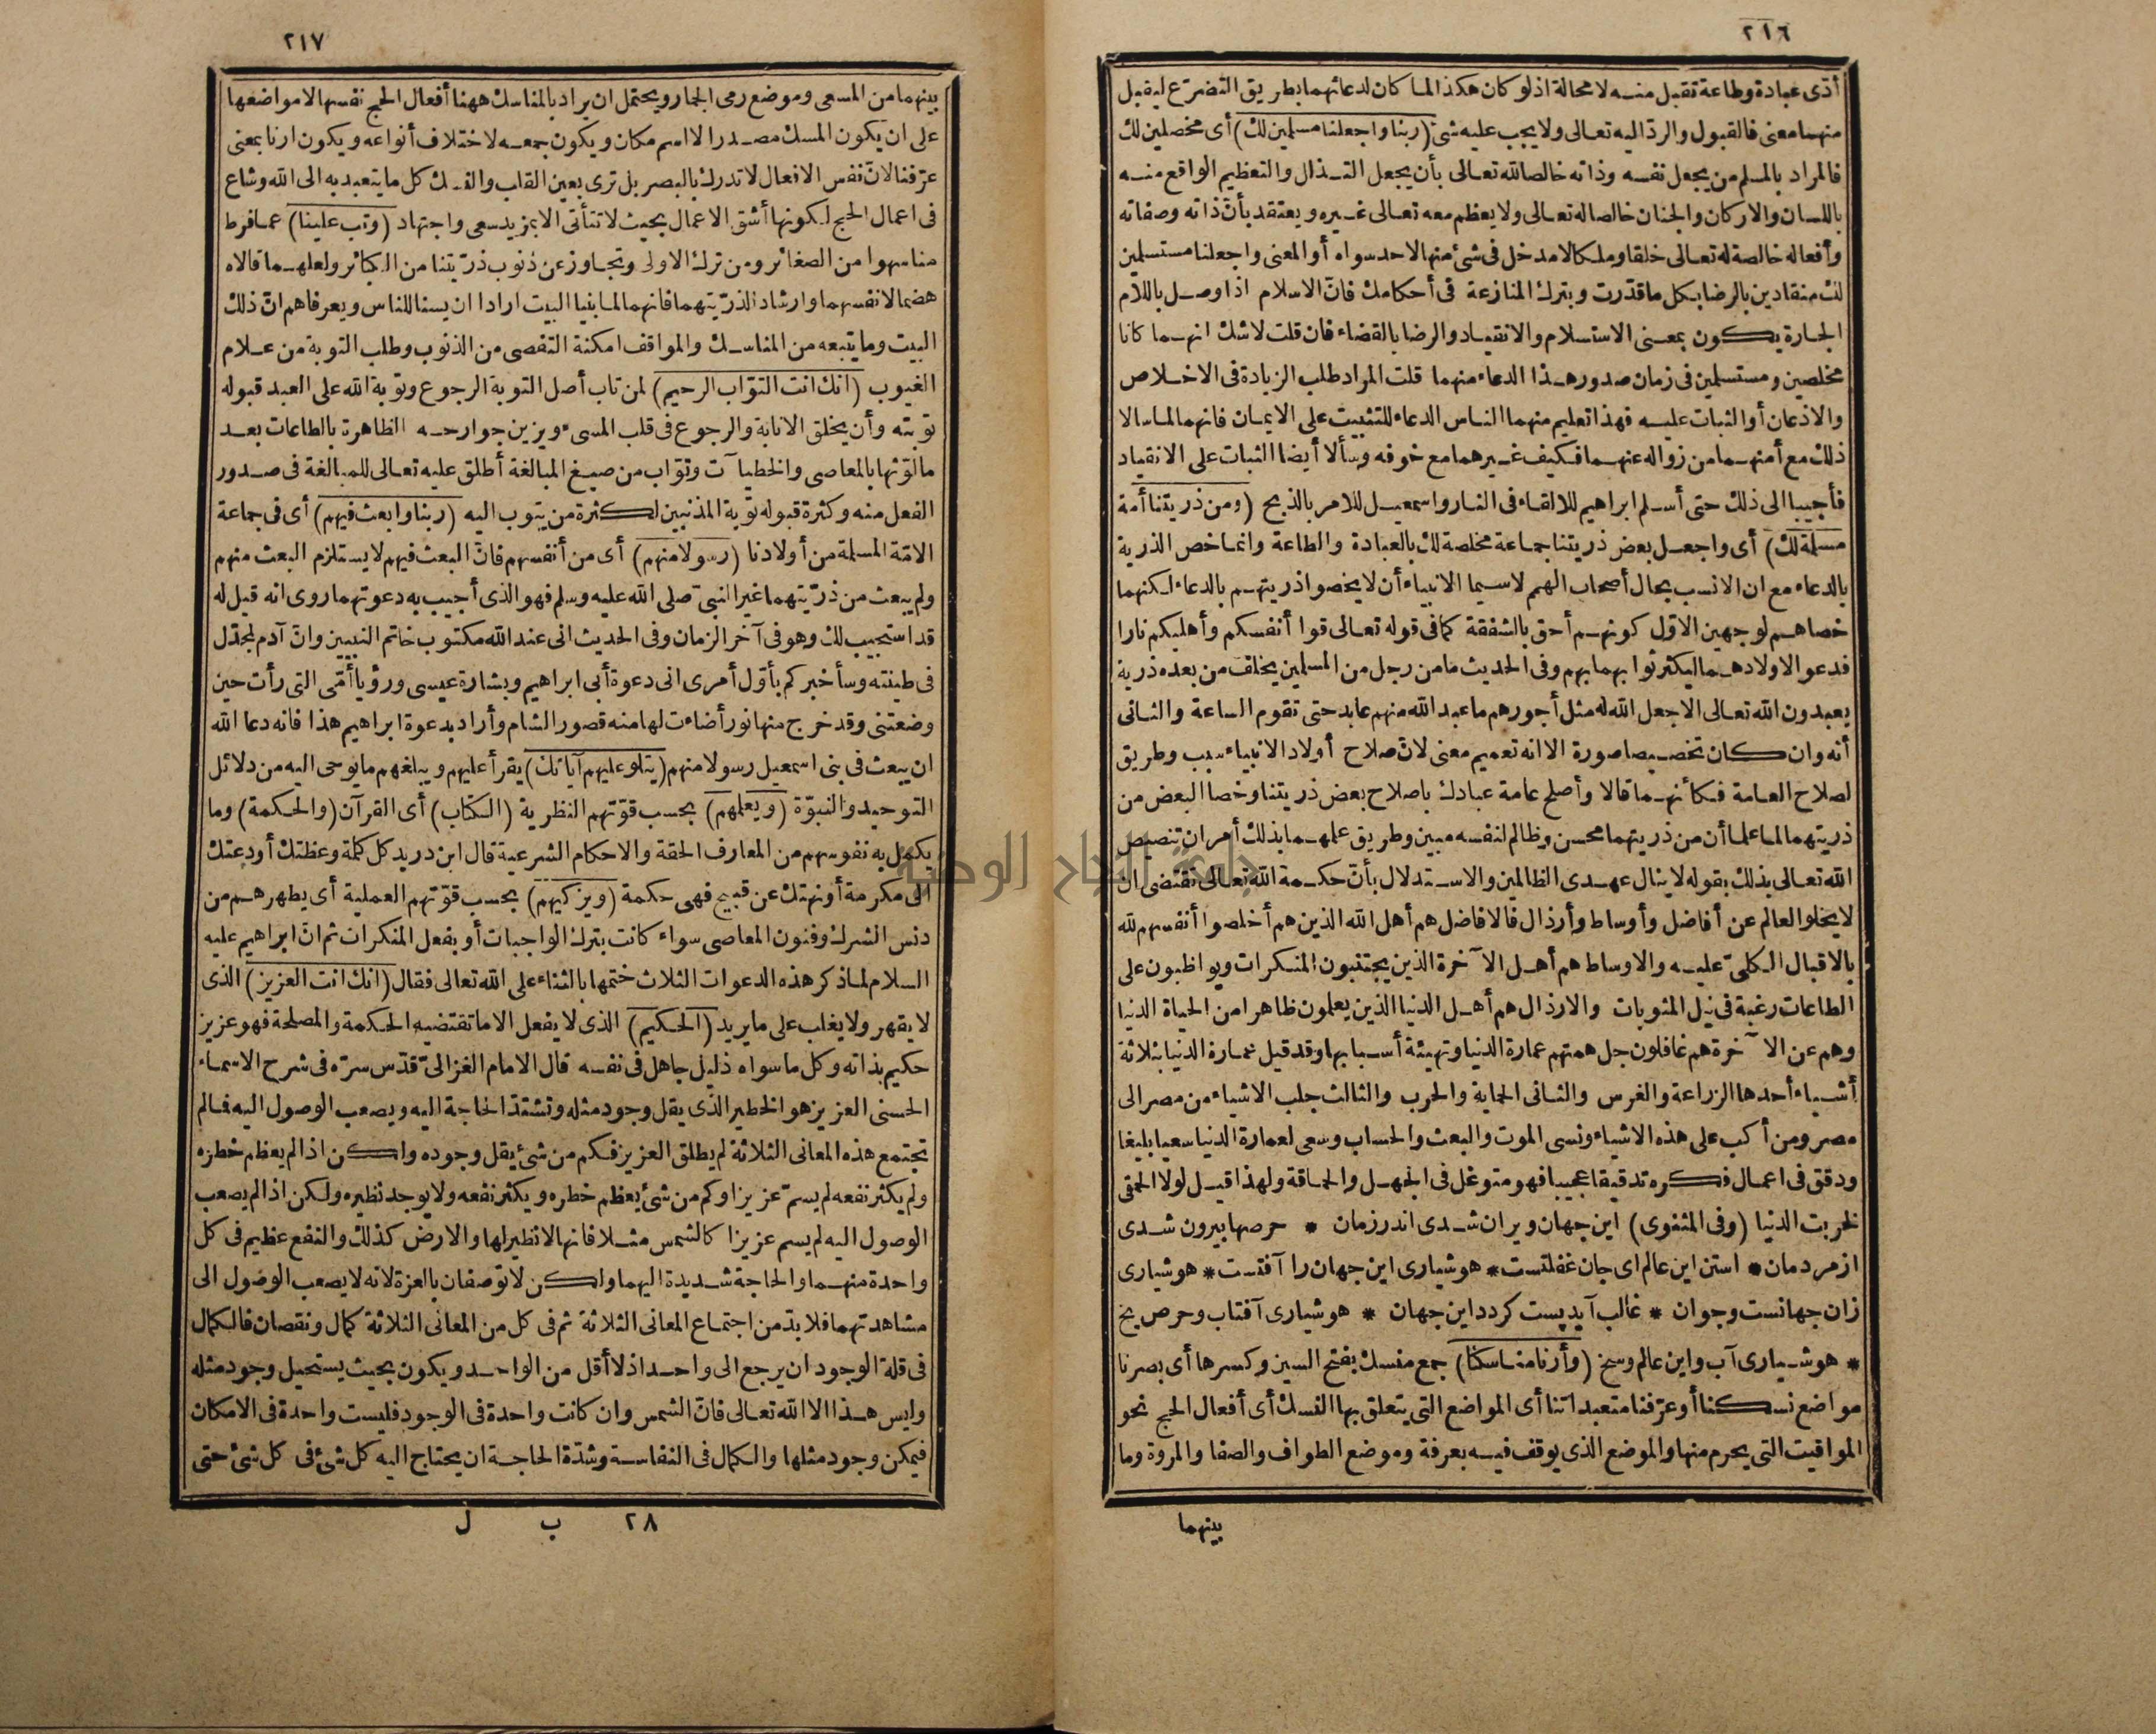 ٢١٦
أدّى عبادة وطاعة تقبل منه لا محالة اذ لو كان هكذا لما كان لدعائهما بطريق التضرّع ليقبل
منهما معنى فالقبول والردّ اليه تعالى ولا يجب عليه شئ (ربنا واجعلنا مسلمين لك) أى مخلصين لك
فالمراد بالمسلم من يجعل نفسه وذاته خالصا لله تعالى بأن يجعل التذلل والتعظيم الواقع منه
باللسان والاركان والجنان خالصا له تعالى ولا يعظم معه تعالى غيره ويعتقد بأنّ ذاته وصفاته
وأفعاله خالصة له تعالى خلقا وملكا لا مدخل فى شئ منها لاحد سواه أو المعنى واجعلنا مستسلمين
لك منقادين بالرضا بكل ما قدّرت وبترك المنازعة فى أحكامك فانّ الاسلام اذا وصل باللام
الجارة يكون بمعنى الاستسلام والانقياد والرضا بالقضاء فان قلت لاشك انهما كانا
مخلصين ومستسلمين فى زمان صدور هذا الدعاء منهما قلت المراد طلب الزيادة فى الاخلاص
والاذعان أو الثبات عليه فهذا تعليم منهما الناس الدعاء للتثبيت على الايمان فانهما لما سالا
ذلك مع أمنهما من زواله عنهما فكيف غيرهما مع خوفه وسألا أيضا الثبات على الانقياد
فأجيبا الى ذلك حتى أسلم ابراهيم للالقاء فى النار واسمعيل للامر بالذبح (ومن ذريتنا أمة
مسلمة لك) أى واجعل بعض ذريتنا جماعة مخلصة لك بالعبادة والطاعة وانما خص الذرية
بالدعاء مع ان الانسب بحال أصحاب الهمم لاسيما الانبياء أن لا يخصوا ذريتهم بالدعاء لكنهما
خصاهم لوجهين الاوّل كونهم أحق بالشفقة كما فى قوله تعالى قوا أنفسكم وأهليكم نارا
فدعوا لاولادهما ليكثر ثوابهما بهم وفى الحديث ما من رجل من المسلمين يخلف من بعده ذرية
يعبدون الله تعالى الا جعل الله له مثل أجورهم ما عبد الله منهم عابد حتى تقوم الساعة والثانى
أنه وان كان تخصيصا صورة الا انه تعميم معنى لانّ صلاح أولاد الانبياء سبب وطريق
لصلاح العامة فكأنهما قالا وأصلح عامة عبادك باصلاح بعض ذريتنا وخصا البعض من
ذريتهما لما علما أن من ذريتهما محسن وظالم لنفسه مبين وطريق علمهما بذلك أمران تنصيص
الله تعالى بذلك بقوله لا ينال عهدى الظالمين والاستدلال بأنّ حكمة الله تعالى تقتضى ان
لا يخلو العالم عن أفاضل وأوساط وأرذال فالافاضل هم أهل الله الذين هم أخلصوا أنفسهم لله
بالاقبال الكلىّ عليه والاوساط هم أهل الآخرة الذين يجتنبون المنكرات ويواظبون على
الطاعات رغبة فى نيل المثوبات والارذال هم أهل الدنيا الذين يعلمون ظاهرا من الحياة الدنيا
وهم عن الآخرة هم غافلون جل همتهم عمارة الدنيا وتهيئة أسبابها وقد قيل عمارة الدنيا بثلاثة
أشياء أحدها الزراعة والغرس والثانى الحماية والحرب والثالث جلب الاشياء من مصر الى
مصر ومن أكب على هذه الاشياء ونسى الموت والبعث والحساب وسعى لعمارة الدنيا سعيا بليغا
ودقق فى اعمال فكره تدقيقا عجيبا فهو متوغل فى الجهل والحماقة ولهذا قيل لولا الحمقى
لخربت الدنيا (وفى المثنوى) اين جهان ويران شدى اندر زمان * حرصها بيرون شدى
از مردمان * استن اين عالم اى جان غفلتست * هوشيارى اين جهان را آفتست * هوشيارى
زان جهانست وجوان * غالب آيد پست كردد اين جهان * هوشيارى آفتاب وحرص يخ
* هوشيارى آب واين عالم وسخ (وأرنا مناسكنا) جمع منسك بفتح السين وكسرها أى بصرنا
مواضع نسكنا أو عرّفنا متعبداتنا أى المواضع التى يتعلق بها النسك أى أفعال الحج نحو
المواقيت التى يحرم منها والموضع الذى يوقف فيه بعرفة وموضع الطواف والصفا والمروة وما
بينهما
٢١٧
بينهما من المسعى وموضع رمى الجمار ويحتمل ان يراد بالمناسك ههنا أفعال الحج نفسها لا مواضعها
على ان يكون المنسك مصدرا لا اسم مكان ويكون جمعه لاختلاف أنواعه ويكون ارنا بمعنى
عرّفنا لانّ نفس الافعال لا تدرك بالبصر بل ترى بعين القلب والنسك كل ما يتعبد به الى الله وشاع
فى اعمال الحج لكونها أشق الاعمال بحيث لا تتأتى الا بمزيد سعى واجتهاد (وتب علينا) عما فرط
منا سهوا من الصغائر ومن ترك الاولى وتجاوز عن ذنوب ذرّيتنا من الكبائر ولعلهما قالاه
هضما لانفسهما وارشادا لذرّيتهما فانهما لما بنيا البيت ارادا ان يسنا للناس ويعرفاهم انّ ذلك
البيت وما يتبعه من المناسك والمواقف امكنة التفصى من الذنوب وطلب التوبة من علام
الغيوب (انك انت التوّاب الرحيم) لمن تاب أصل التوبة الرجوع وتوبة الله على العبد قبوله
توبته وأن يخلق الانابة والرجوع فى قلب المسىء ويزين جوارحه الظاهرة بالطاعات بعد
ما لوّثها بالمعاصى والخطيآت وتوّاب من صيغ المبالغة أطلق عليه تعالى للمبالغة فى صدور
الفعل منه وكثرة قبوله توبة المذنبين لكثرة من يتوب اليه (ربنا وابعث فيهم) أى فى جماعة
الامّة المسلمة من أولادنا (رسولا منهم) أى من أنفسهم فانّ البعث فيهم لا يستلزم البعث منهم
ولم يبعث من ذرّيتهما غير النبىّ صلى الله عليه وسلم فهو الذى أجيب به دعوتهما روى انه قيل له
قد استجيب لك وهو فى آخر الزمان وفى الحديث انى عند الله مكتوب خاتم النبيين وانّ آدم لمجدّل
فى طينته وسأخبركم بأوّل أمرى انى دعوة أبى ابراهيم وبشارة عيسى ورؤيا أمّى التى رأت حين
وضعتنى وقد خرج منها نور أضاءت لها منه قصور الشام وأراد بدعوة ابراهيم هذا فانه دعا الله
ان يبعث فى بنى اسمعيل رسولا منهم (يتلو عليهم آياتك) يقرأ عليهم ويبلغهم ما يوحى اليه من دلائل
التوحيد والنبوّة (ويعلمهم) بحسب قوّتهم النظرية (الكتاب) أى القرآن (والحكمة) وما
يكمل به نفوسهم من المعارف الحقة والاحكام الشرعية قال ابن دريد كل كلمة وعظتك أو دعتك
الى مكرمة أو نهتك عن قبيح فهى حكمة (ويزكيهم) بحسب قوّتهم العملية أى يطهرهم من
دنس الشرك وفنون المعاصى سواء كانت بترك الواجبات أو بفعل المنكرات ثم انّ ابراهيم عليه
السلام لما ذكر هذه الدعوات الثلاث ختمها بالثناء على الله تعالى فقال (انك انت العزيز) الذى
لا يقهر ولا يغلب على ما يريد (الحكيم) الذى لا يفعل الا ما تقتضيه الحكمة والمصلحة فهو عزيز
حكيم بذاته وكل ما سواه ذليل جاهل فى نفسه قال الامام الغزالىّ قدّس سرّه فى شرح الاسماء
الحسنى العزيز هو الخطير الذى يقل وجود مثله وتشتدّ الحاجة اليه ويصعب الوصول اليه فما لم
تجتمع هذه المعانى الثلاثة لم يطلق العزيز فكم من شئ يقل وجوده ولكن اذا لم يعظم خطره
ولم يكثر نفعه لم يسمّ عزيزا وكم من شئ يعظم خطره ويكثر نفعه ولا يوجد نظيره ولكن اذا لم يصعب
الوصول اليه لم يسم عزيزا كالشمس مثلا فانها لا نظير لها والارض كذلك والنفع عظيم فى كل
واحدة منهما والحاجة شديدة اليهما ولكن لا توصفان بالعزة لانه لا يصعب الوصول الى
مشاهدتهما فلا بدّ من اجتماع المعانى الثلاثة ثم فى كل من المعانى الثلاثة كمال ونقصان فالكمال
فى قلة الوجود ان يرجع الى واحد اذ لا أقل من الواحد ويكون بحيث يستحيل وجود مثله
وليس هذا الا الله تعالى فانّ الشمس وان كانت واحدة فى الوجود فليست واحدة فى الامكان
فيمكن وجود مثلها والكمال فى النفاسة وشدّة الحاجة ان يحتاج اليه كل شئ فى كل شئ حتى
٢٨ ب ل
جامعة النجاح الوطنية